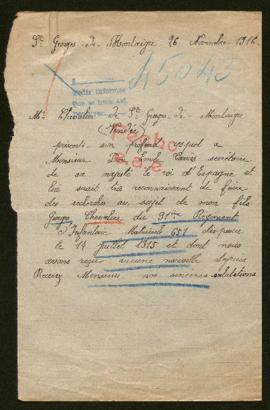 St Georges - de - Montaigu 26 Novembre 1916
45043
Mr Chevalier de St Georges - de - Montaigu
(Vendée)
présente son profond respect à
Monsieur Emilio secrétaire
de sa majesté le roi d'Espagne et
lui serait très reconnaissant de faire
des recherches au sujet de mon fils
Georges Chevalier du 91ème Régiment
d'Infanterie Matricule 651 disparu
le 14 juillet 1915 et dont nous
avons reçu aucune nouvelle depuis
Recevez Monsieur nos sincères salutations